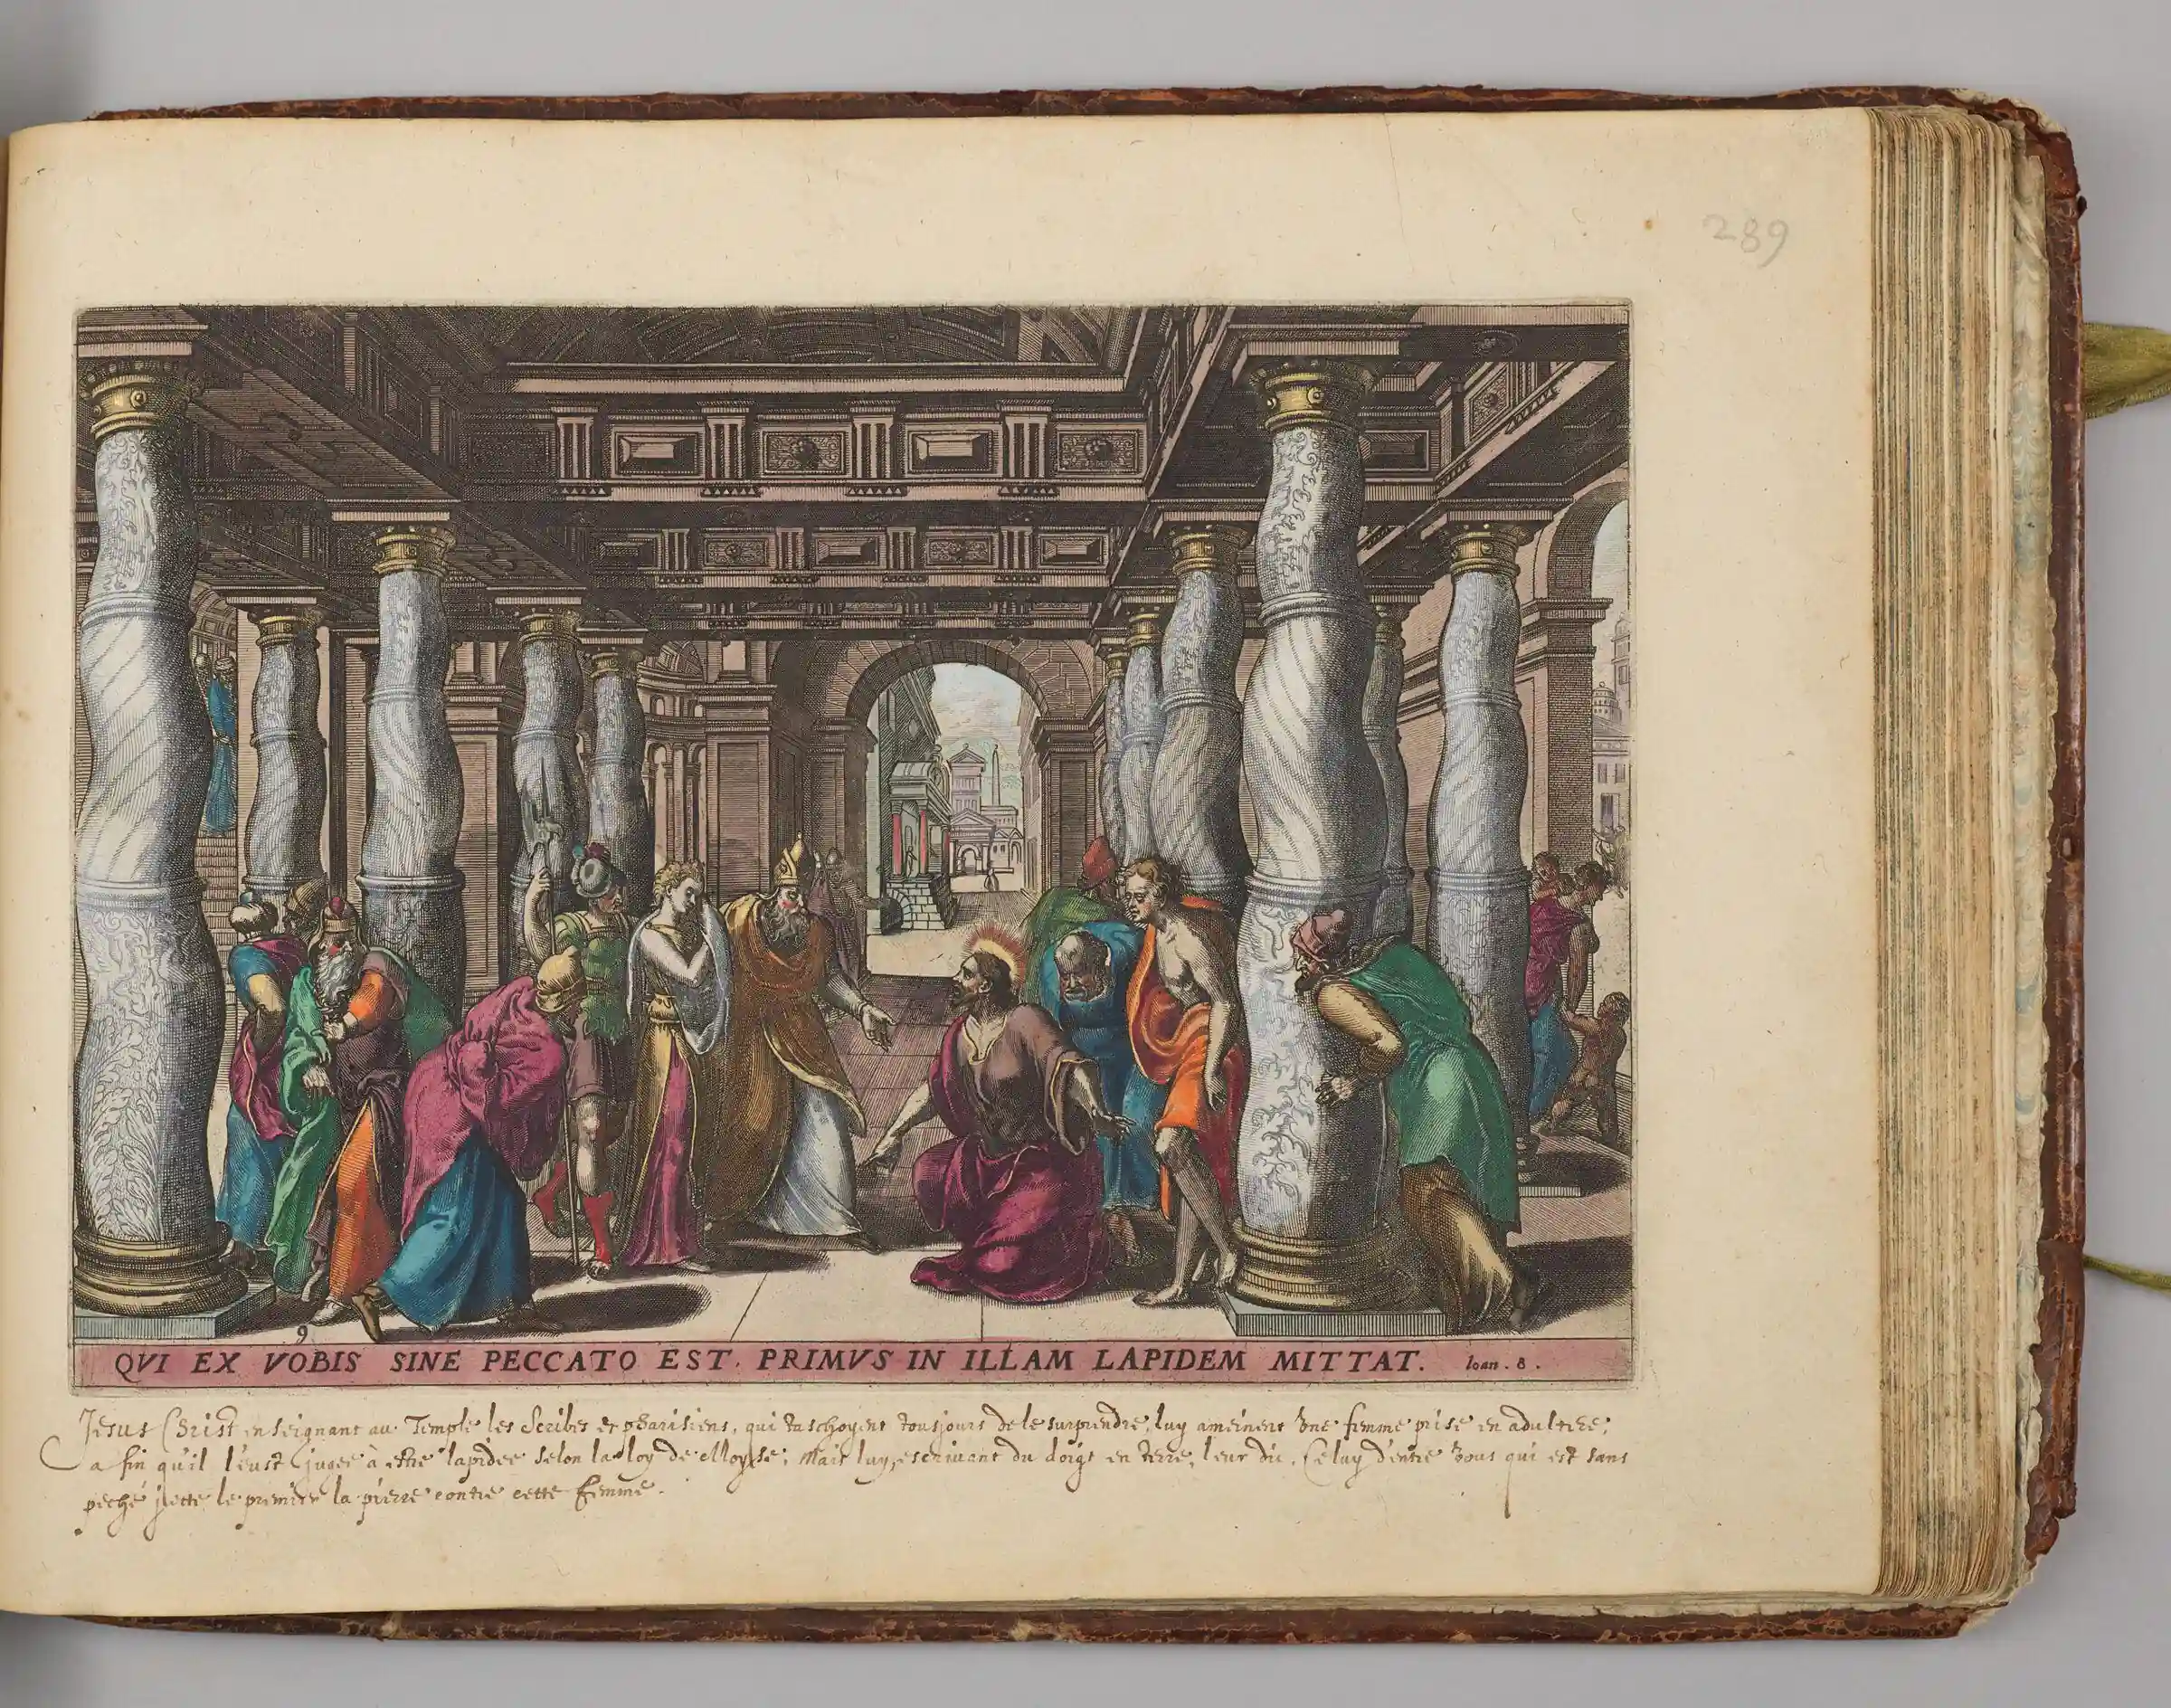 289
9
QVI EX VOBIS SINE PECCATO EST. PRIMVS IN ILLAM LAPIDEM MITTAT. Ioan. 8.
Jesus Christ enseignant au Temple les Scribes et pharisiens, qui taschoyent tousjours de le surprendre, luy ameinent vne femme prise en adultere;
a fin qu'il l'eust jugée à estre lapidee selon la loy de Moyse; Mais luy, escriuant du doigt en terre, leur dit. Celuy d'entre vous qui est sans
peché jette le premier la pierre contre cette femme.